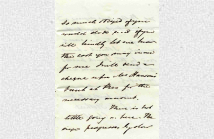 so much obliged if you
would do so and if you
will kindly let me know
the cost you may incur
for me I will send a
cheque upon Mr
Trust at Plus for the
necessary amount.
There is but
little going on here. The
progresses by slow